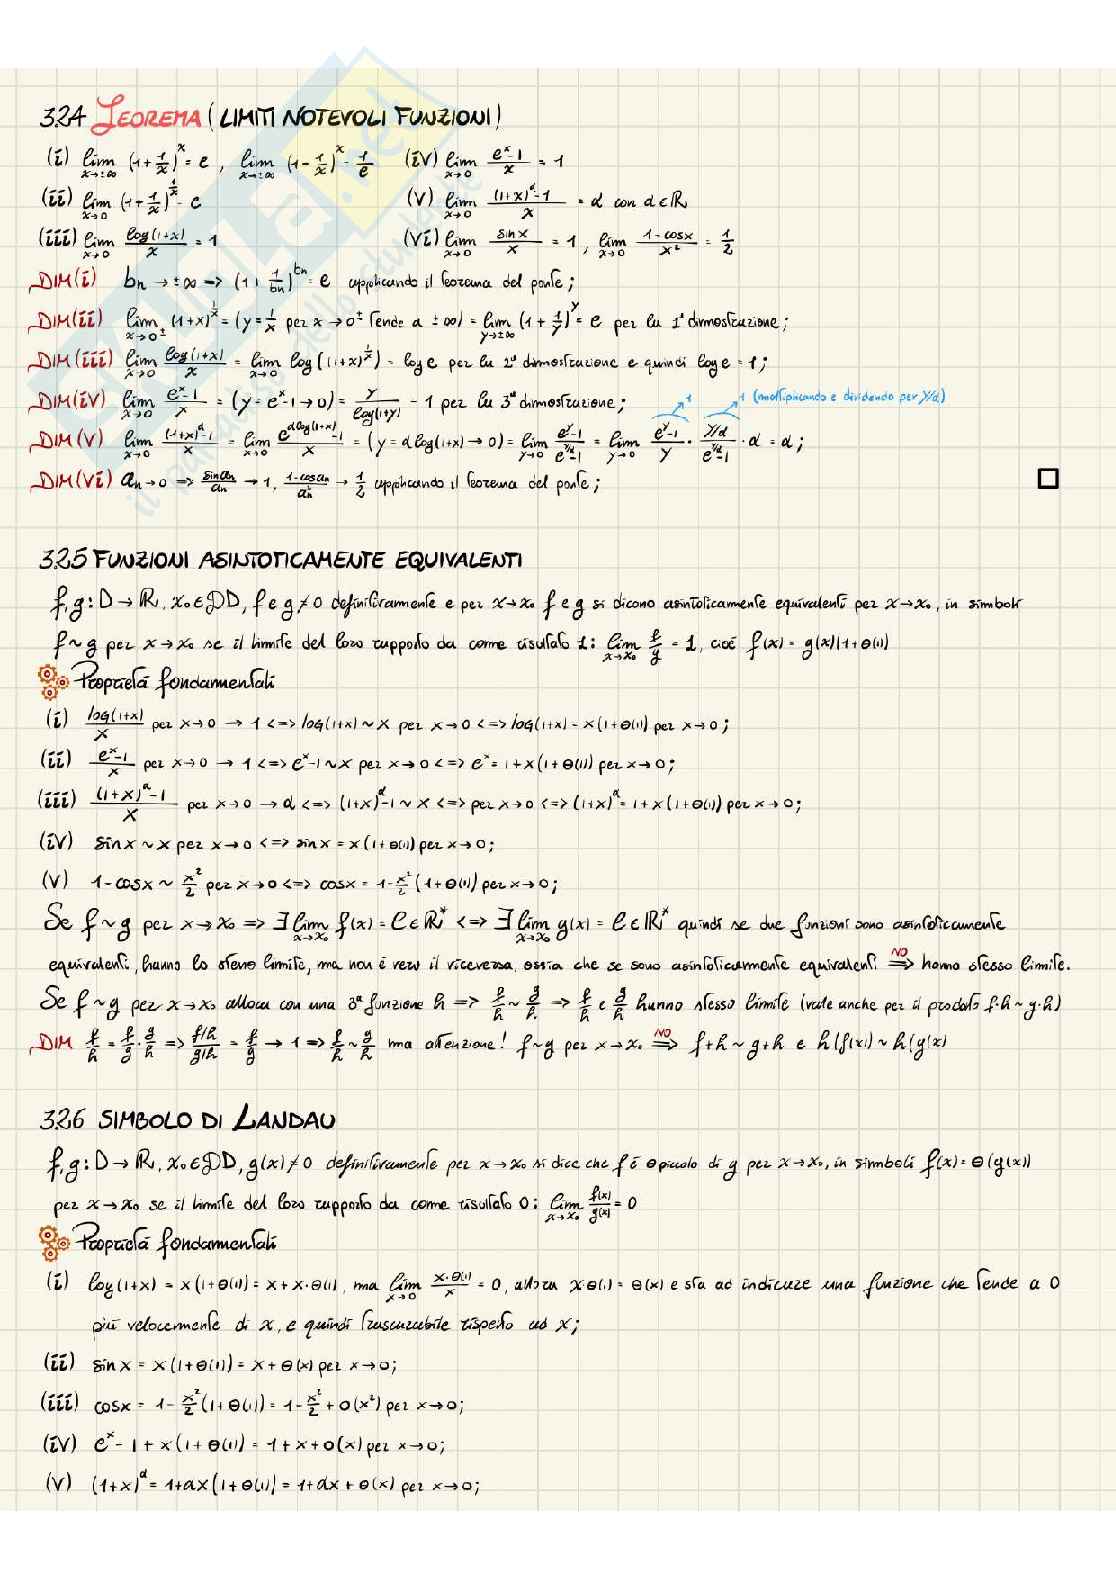 3.2.4 TEOREMA (LIMITI NOTEVOLI FUNZIONI)
(i) lim x→±∞ (1+1/x)^x = e , lim x→±∞ (1-1/x)^x = 1/e (iv) lim x→0 (e^x-1)/x = 1
(ii) lim x→0 (1+1/x)^(1/x) = e (v) lim x→0 ((1+x)^α-1)/x = α con α∈ℝ
(iii) lim x→0 log(1+x)/x = 1 (vi) lim x→0 sinx/x = 1 , lim x→0 (1-cosx)/x² = 1/2
DIM(i) bn → ±∞ => (1+1/bn)^bn = e applicando il teorema del ponte;
DIM(ii) lim x→0± (1+x)^(1/x) = (y=1/x per x→0± tende a ±∞) = lim y→±∞ (1+1/y)^y = e per la 1ª dimostrazione;
DIM(iii) lim x→0 log(1+x)/x = lim x→0 log((1+x)^(1/x)) = log e per la 2ª dimostrazione e quindi log e = 1;
DIM(iv) lim x→0 (e^x-1)/x = (y=e^x-1→0) = y/log(1+y) = 1 per la 3ª dimostrazione;
1 1 (moltiplicando e dividendo per y/α)
DIM(v) lim x→0 ((1+x)^α-1)/x = lim x→0 (e^(αlog(1+x))-1)/x = (y=αlog(1+x)→0) = lim y→0 (e^y-1)/(e^(y/α)-1) = lim y→0 (e^y-1)/y · (y/α)/(e^(y/α)-1) · α = α;
DIM(vi) an→0 => sinan/an → 1, (1-cosan)/an² → 1/2 applicando il teorema del ponte; □
3.2.5 FUNZIONI ASINTOTICAMENTE EQUIVALENTI
f,g: D→ℝ, x₀∈𝒟D, f e g ≠ 0 definitivamente e per x→x₀ f e g si dicono asintoticamente equivalenti per x→x₀, in simboli
f~g per x→x₀ se il limite del loro rapporto da come risultato 1: lim x→x₀ f/g = 1, cioè f(x) = g(x)(1+o(1))
Proprietà fondamentali
(i) log(1+x)/x per x→0 → 1 <=> log(1+x) ~ x per x→0 <=> log(1+x) = x(1+o(1)) per x→0;
(ii) (e^x-1)/x per x→0 → 1 <=> e^x-1 ~ x per x→0 <=> e^x = 1+x(1+o(1)) per x→0;
(iii) ((1+x)^α-1)/x per x→0 → α <=> (1+x)^α-1 ~ x <=> per x→0 <=> (1+x)^α = 1+x(1+o(1)) per x→0;
(iv) sinx ~ x per x→0 <=> sinx = x(1+o(1)) per x→0;
(v) 1-cosx ~ x²/2 per x→0 <=> cosx = 1-x²/2 (1+o(1)) per x→0;
Se f~g per x→x₀ => ∃ lim x→x₀ f(x) = ℓ∈ℝ* <=> ∃ lim x→x₀ g(x) = ℓ∈ℝ* quindi se due funzioni sono asintoticamente
equivalenti, hanno lo stesso limite, ma non è vero il viceversa, ossia che se sono asintoticamente equivalenti NO => hanno stesso limite.
Se f~g per x→x₀ allora con una 3ª funzione h => f/h ~ g/h => f/h e g/h hanno stesso limite (vale anche per il prodotto f·h ~ g·h)
DIM f/h = f/g · g/h => (f/h)/(g/h) = f/g → 1 => f/h ~ g/h ma attenzione! f~g per x→x₀ NO => f+h ~ g+h e h(f(x)) ~ h(g(x)
3.2.6 SIMBOLO DI LANDAU
f,g: D→ℝ, x₀∈𝒟D, g(x)≠0 definitivamente per x→x₀ si dice che f è o piccolo di g per x→x₀, in simboli f(x) = o(g(x))
per x→x₀ se il limite del loro rapporto da come risultato 0: lim x→x₀ f(x)/g(x) = 0
Proprietà fondamentali
(i) log(1+x) = x(1+o(1)) = x+x·o(1), ma lim x→0 x·o(1)/x = 0, allora x·o(1) = o(x) e sta ad indicare una funzione che tende a 0
più velocemente di x, e quindi trascurabile rispetto ad x;
(ii) sinx = x(1+o(1)) = x+o(x) per x→0;
(iii) cosx = 1-x²/2 (1+o(1)) = 1-x²/2 + o(x²) per x→0;
(iv) e^x - 1+x(1+o(1)) = 1+x+o(x) per x→0;
(v) (1+x)^α = 1+αx(1+o(1)) = 1+αx+o(x) per x→0;